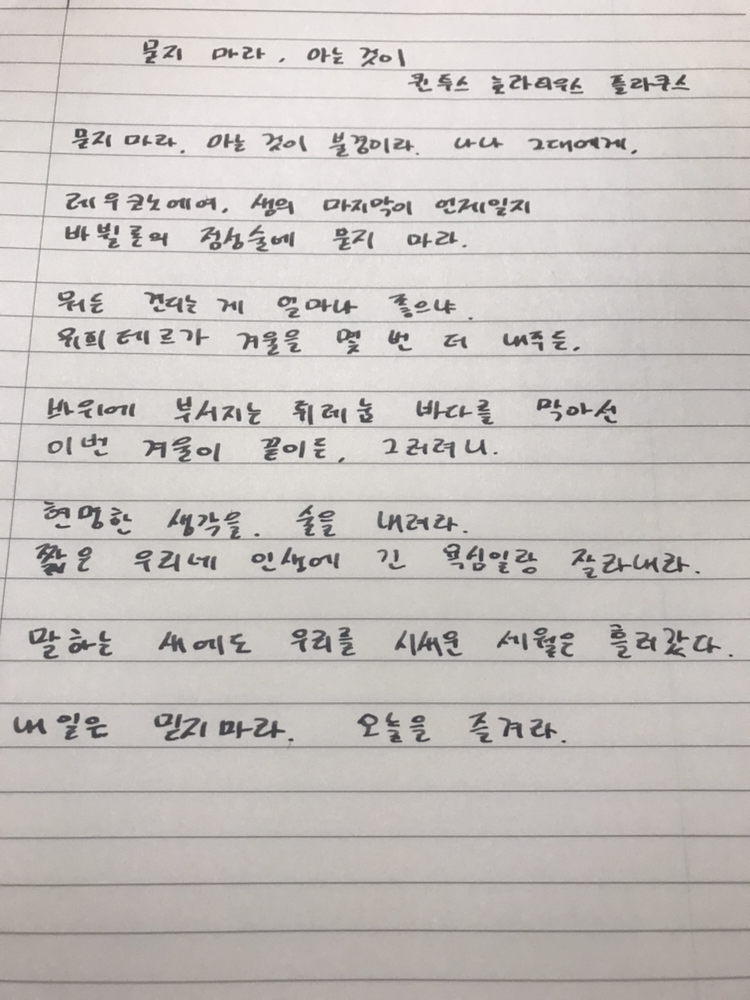 묻지 마라, 아는 것이
퀸투스 호라티우스 플라쿠스
묻지 마라. 아는 것이 불경이라. 나나 그대에게,
레우코노에여, 생의 마지막이 언제일지
바빌론의 점성술에 묻지 마라.
뭐든 견디는 게 얼마나 좋으냐.
유피테르가 겨울을 몇 번 더 내주든,
바위에 부서지는 튀레눔 바다를 막아선
이번 겨울이 끝이든, 그러려니.
현명한 생각을. 술을 내려라.
짧은 우리네 인생에 긴 욕심일랑 잘라내라.
말하는 새에도 우리를 시새운 세월은 흘러갔다.
내일은 믿지마라. 오늘을 즐겨라.